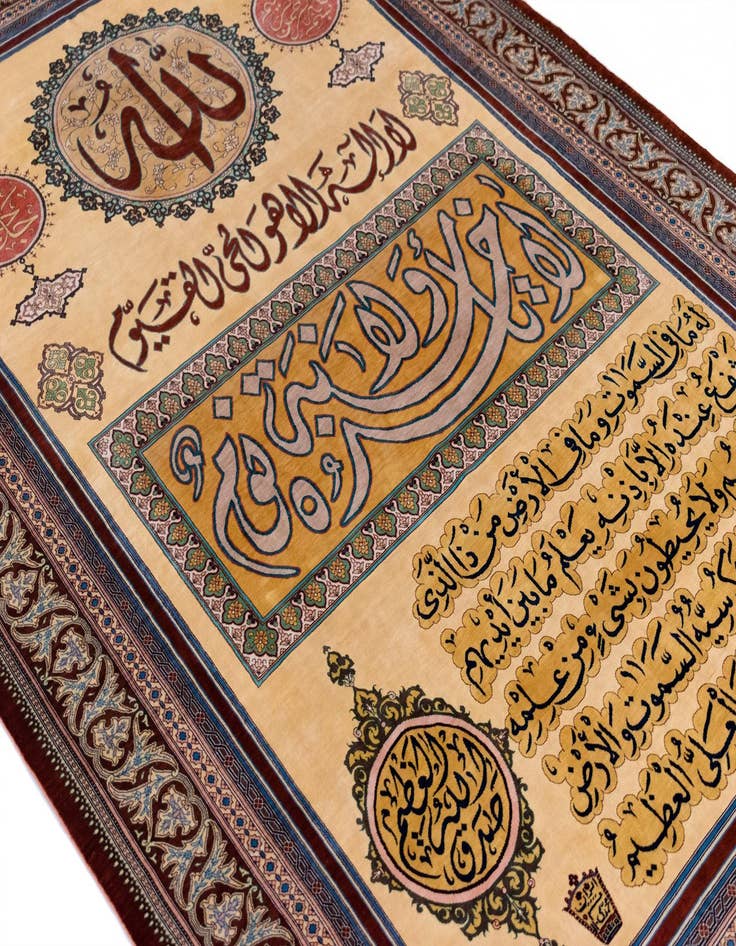 الله
محمد
لا اله الا هو الحیّ القیّوم
لا تأخذه سنة ولا نوم
له ما فی السموات وما فی الأرض من ذا الذی
یشفع عنده إلّا بإذنه یعلم ما بین أیدیهم
ولا یحیطون بشیء من علمه
کرسیّه السّموات والأرض
العلیّ العظیم
صدق الله العظیم